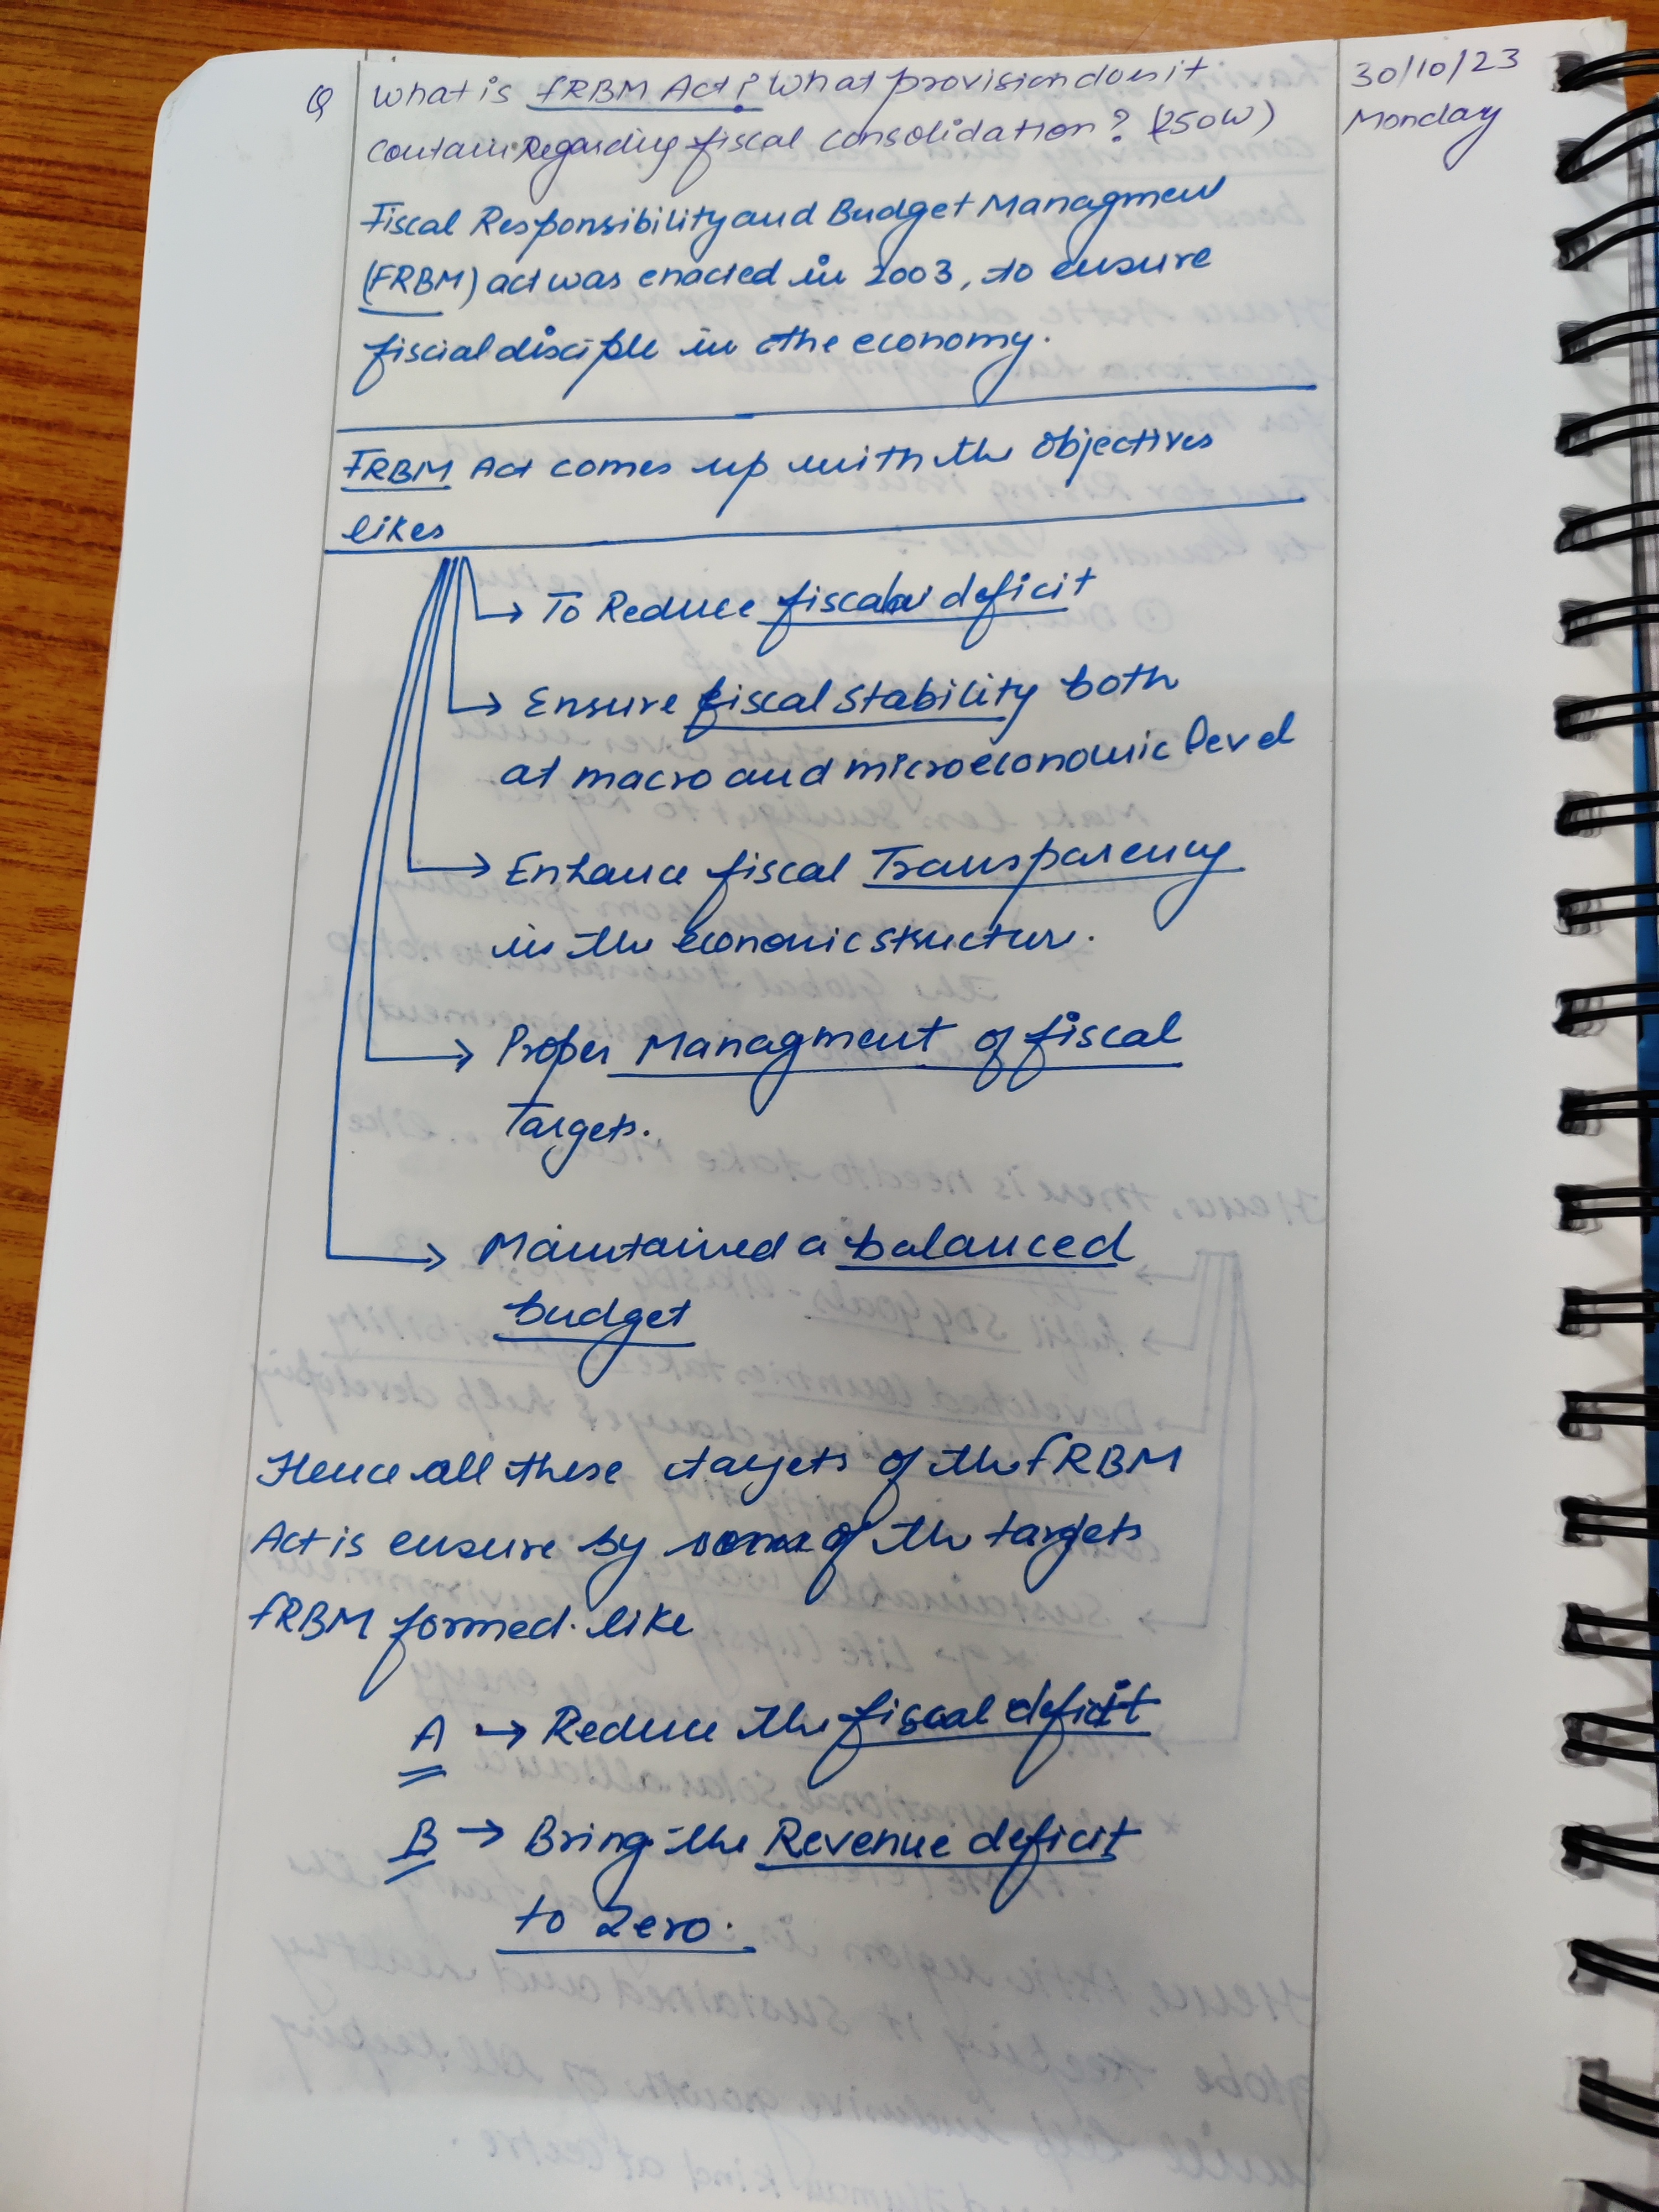 Q What is FRBM Act? What provision does it
contain Regarding fiscal consolidation? (250W)
30/10/23
Monday
Fiscal Responsibility and Budget Managment
(FRBM) act was enacted in 2003, to ensure
fiscial disciple in the economy.
FRBM Act comes up with the objectives
likes
→ To Reduce fiscal deficit
→ Ensure fiscal stability both
at macro and microeconomic level
→ Enhance fiscal Transparency
in the economic structure.
→ Proper Managment of fiscal
Targets.
→ Maintained a balanced
budget
Hence all these targets of the FRBM
Act is ensure by some of the targets
FRBM formed. like
A → Reduce the fiscal deficit
B → Bring the Revenue deficit
to zero.